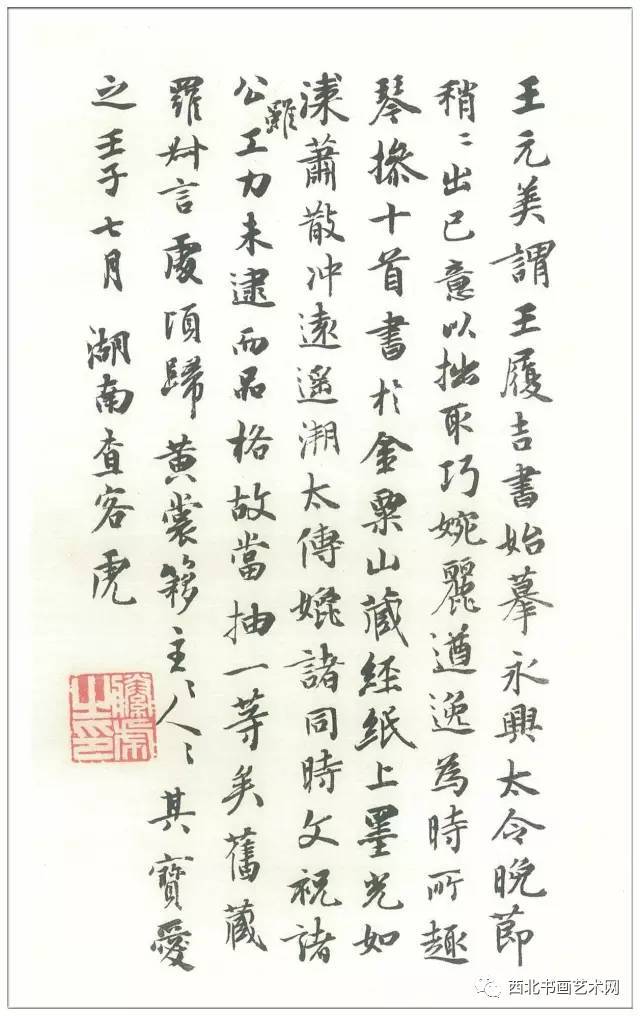 王元美謂王履吉書始摹永興太令晚節
稍〻出己意以拙取巧婉麗遒逸為時所趣
琴操十首書於金粟山藏經紙上墨光如
漆蕭散冲遠遥溯太傅媲諸同時文祝諸
公雖工力未逮而品格故當抽一等矣舊藏
羅叔言處頃歸黄裳簃主〻人〻其寳愛
之壬子七月 湖南查客虎
之印
西北书画艺术网